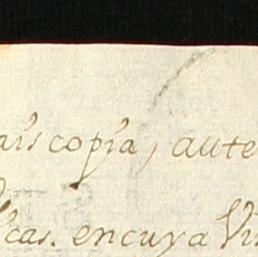 ais copia, aute
cas. encuya Vi